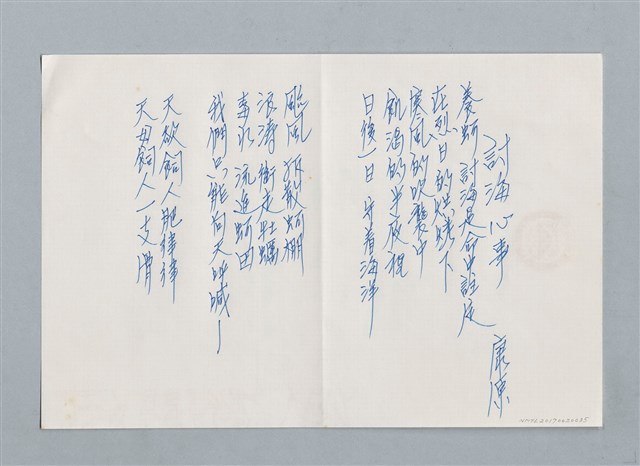 討海心事
康原
養蚵 討海是命中註定
在烈日的烘烤下
寒風的吹襲中
飢渴的半夜裡
日復一日 守着海洋
颱風 拆散蚵棚
浪濤 衝走牡蠣
毒水 流進蚵田
我們只能向天吶喊—
天欲飼人肥律律
天毋飼人一支骨
NMTL20170030635